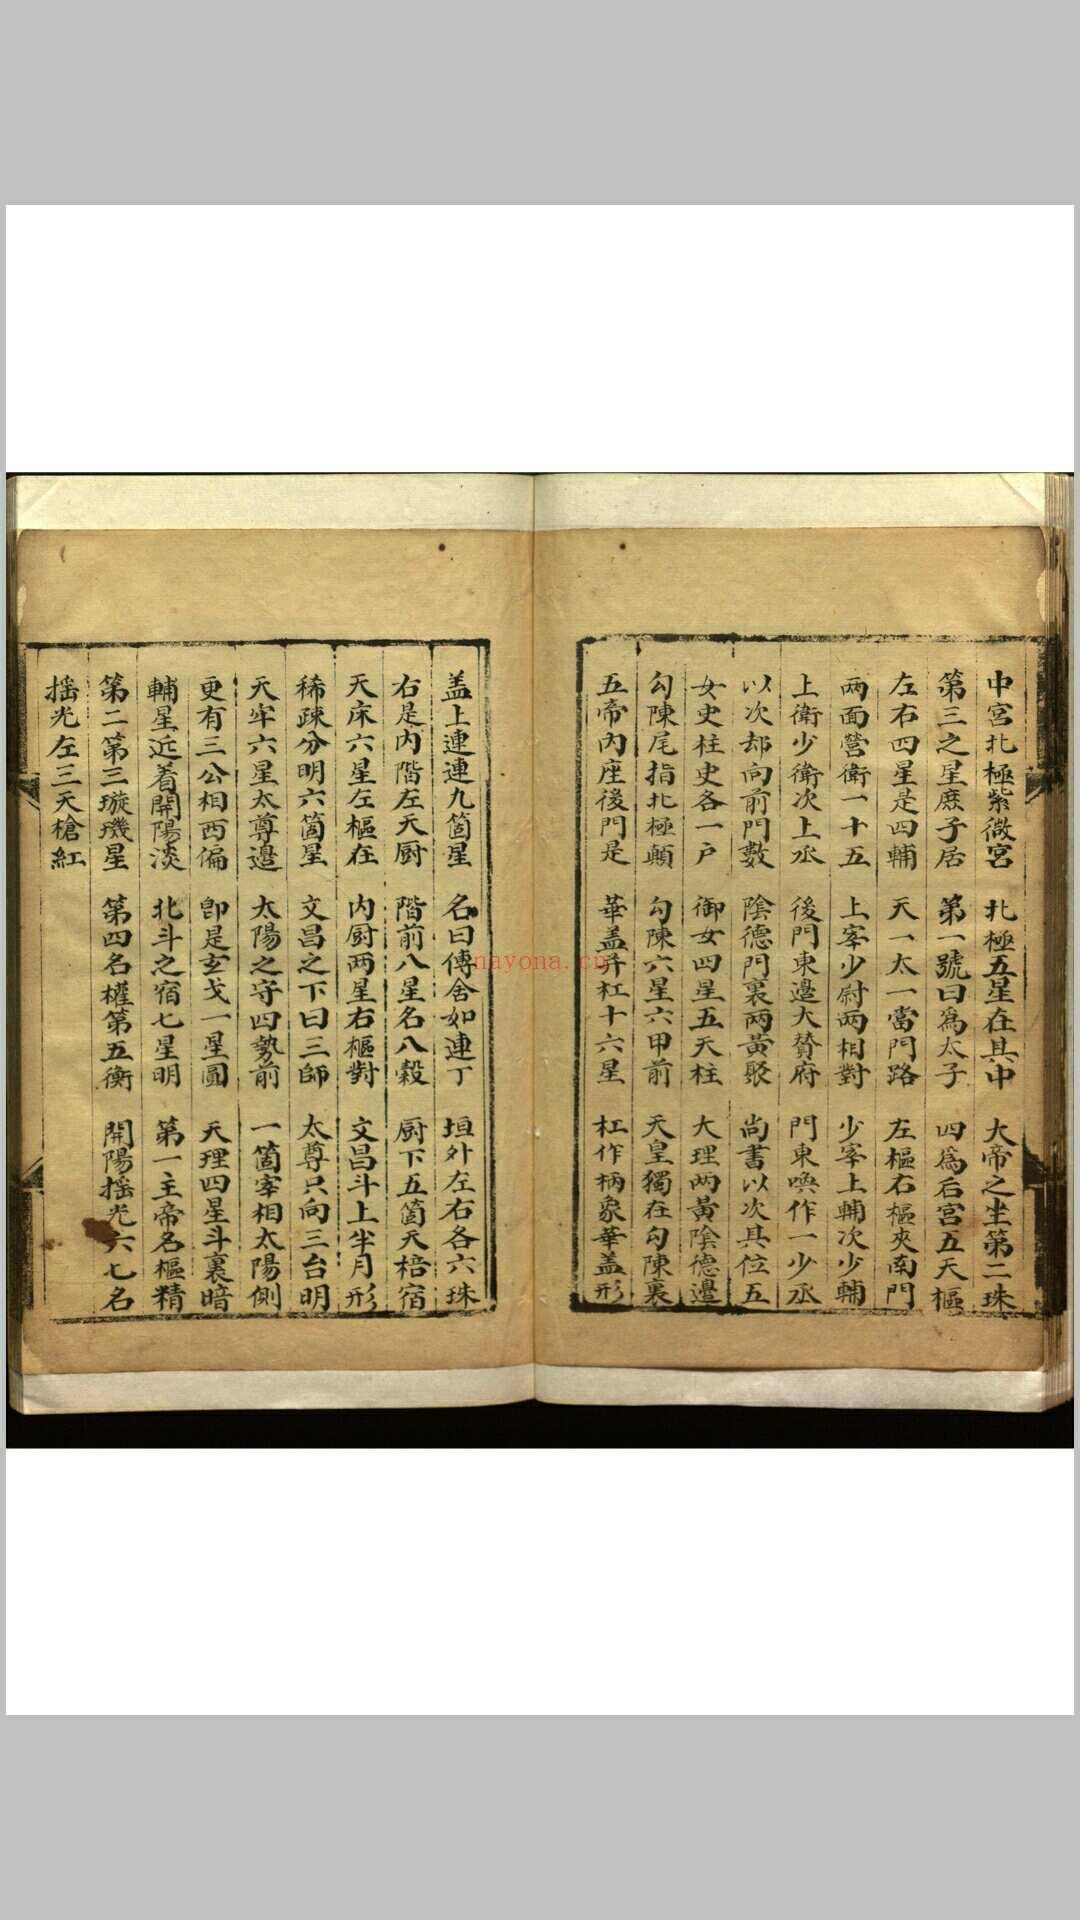 中宮北極紫微宮 北極五星在其中 大帝之坐第二珠
第三之星庶子居 第一號曰爲太子 四爲后宮五天樞
左右四星是四輔 天一太一當門路 左樞右樞夾南門
兩面營衛一十五 上宰少尉兩相對 少宰上輔次少輔
上衛少衛次上丞 後門東邊大賛府 門東喚作一少丞
以次却向前門數 陰德門裏兩黃聚 尚書以次其位五
女史柱史各一户 御女四星五天柱 大理兩黃陰德邊
勾陳尾指北極顛 勾陳六星六甲前 天皇獨在勾陳裏
五帝內座後門是 華盖并杠十六星 杠作柄象華盖形
盖上連連九箇星 名曰傳舍如連丁 垣外左右各六珠
右是内階左天厨 階前八星名八穀 厨下五箇天棓宿
天床六星左樞在 内厨两星右樞對 文昌斗上半月形
稀疎分明六箇星 文昌之下曰三師 太尊只向三台明
天牢六星太尊邊 太陽之守四勢前 一箇宰相太陽側
更有三公相西偏 卽是玄戈一星圓 天理四星斗裏暗
輔星近着開陽淡 北斗之宿七星明 第一主帝名樞精
第二第三璇璣星 第四名權第五衡 開陽揺光六七名
揺光左三天槍紅
nayona.cn